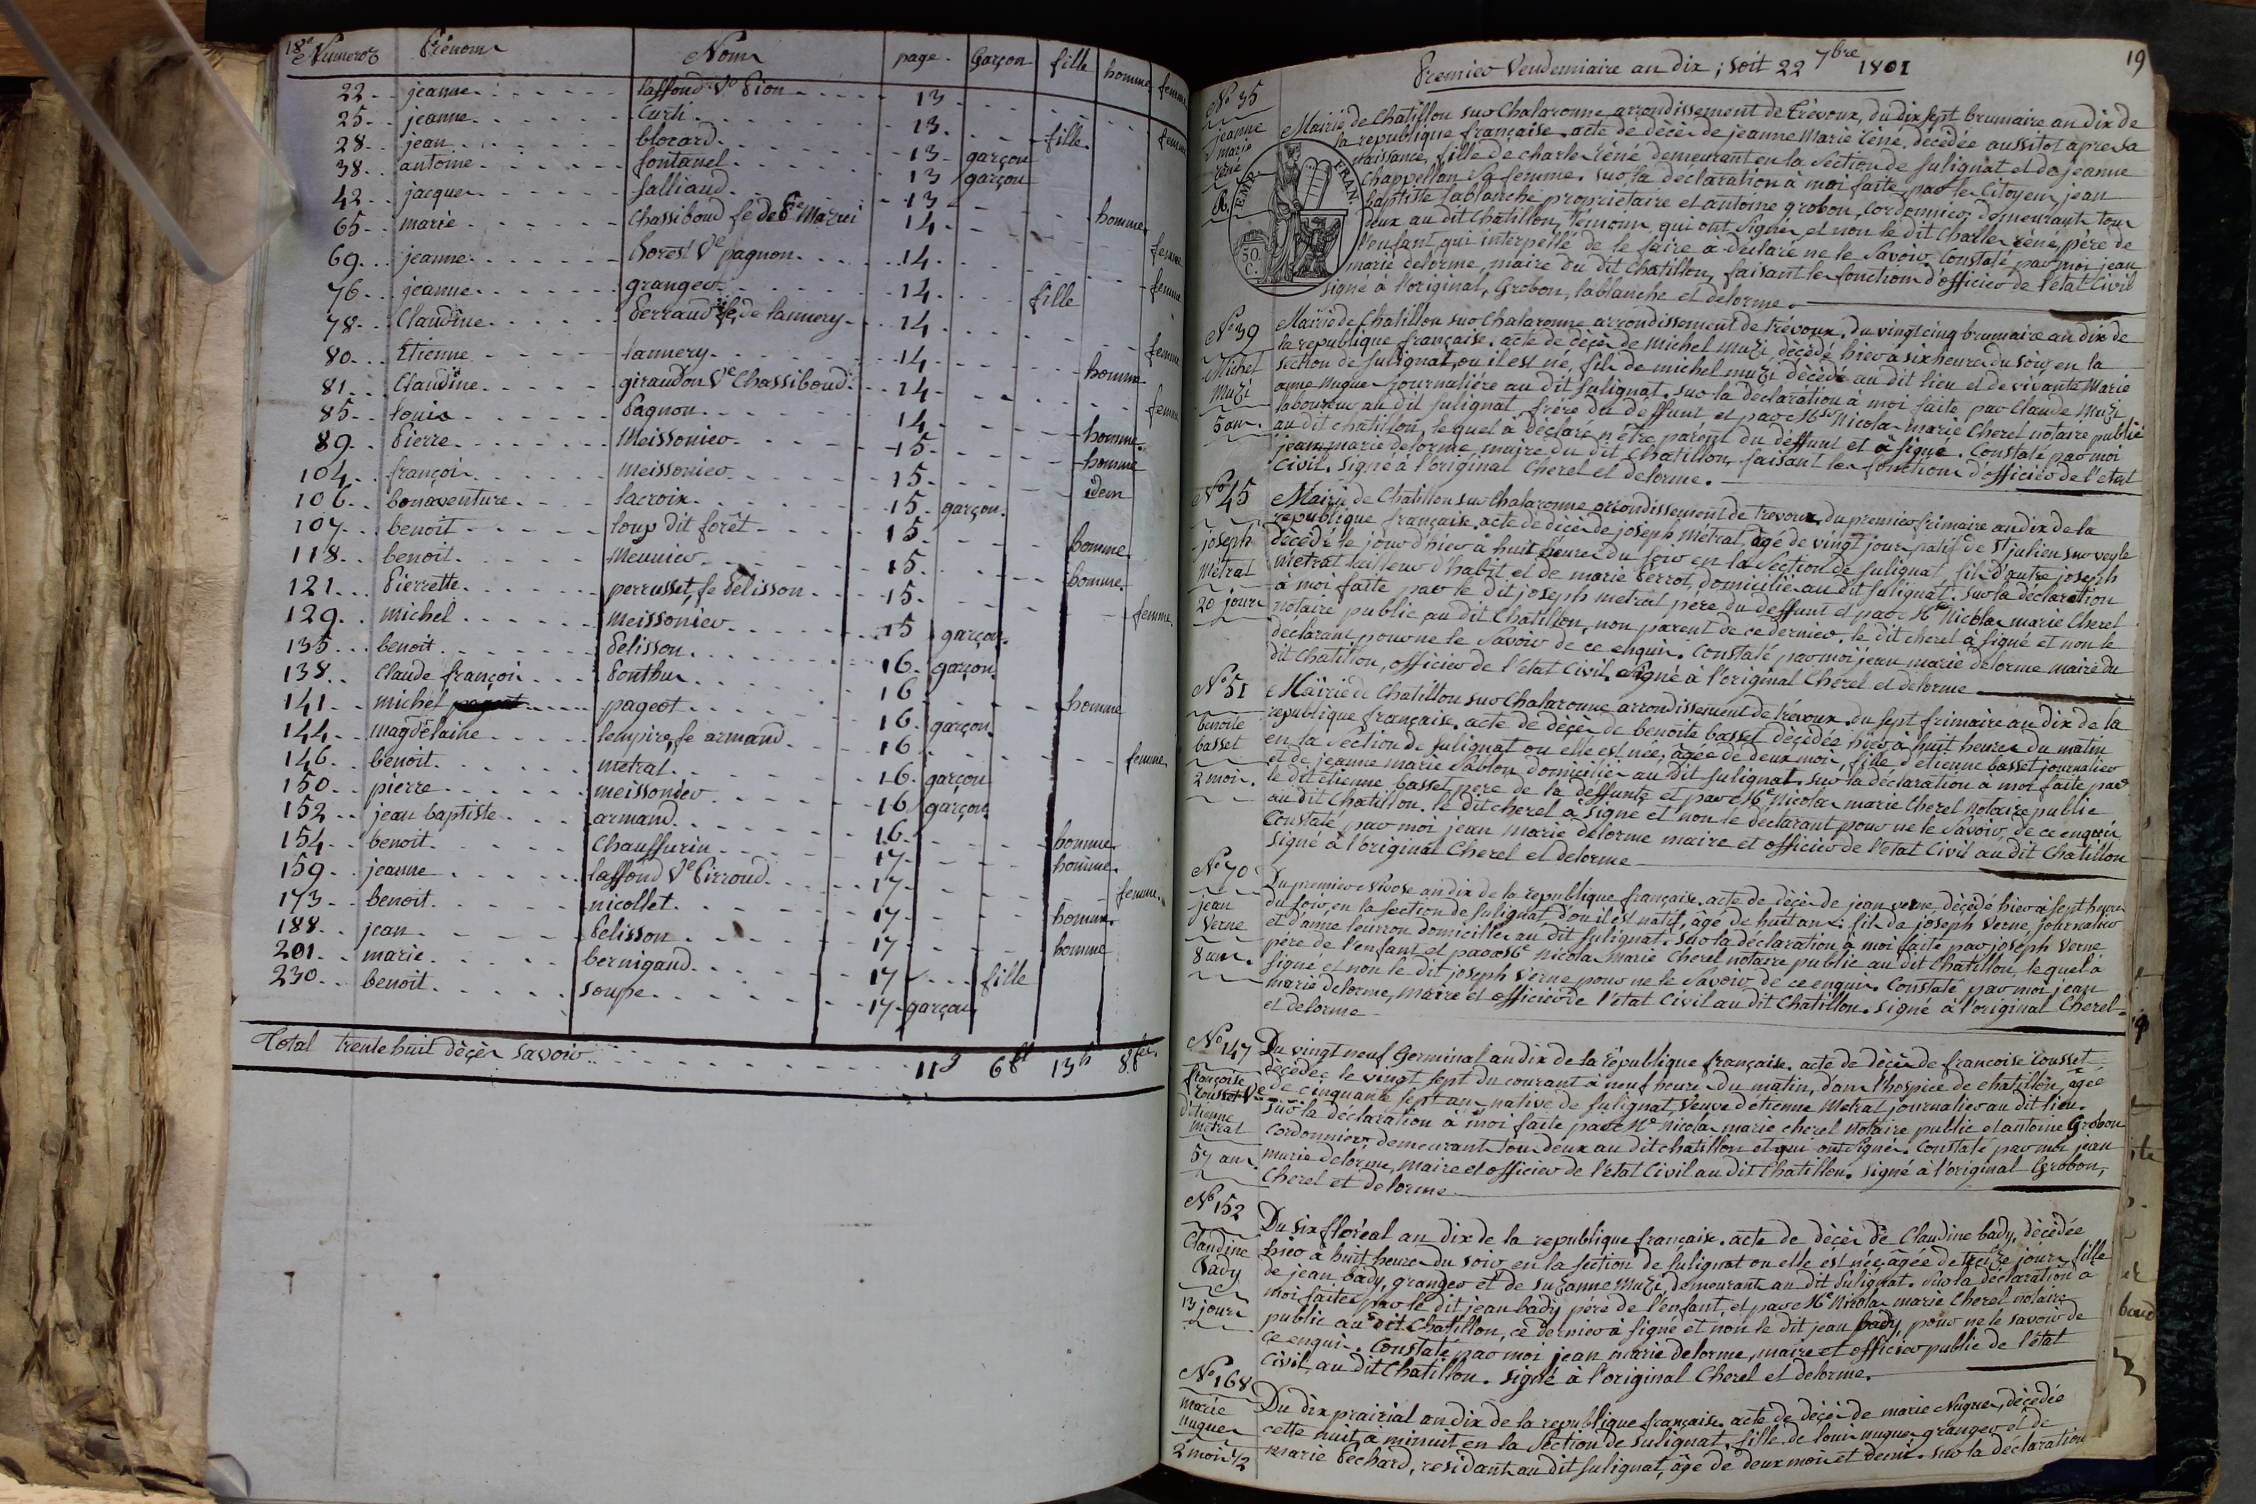 18e
Numeros Prénoms Noms page. Garçon fille homme femme
22 jeanne laffond Ve Pion 13 femme
25 jeanne Curti 13 fille
28 jean blocard 13 garçon
38 antoine fontanel 13 garçon
42 jacques salliaud 13 homme
65 marie Chassiboud fe de Pre Mazui 14 femme
69 jeanne Ve pagnon 14 femme
76 jeanne granger 14 fille
78 Claudine Perraud fe de tannery 14 femme
80 Etienne tannery 14 homme
81 Claudine giraudon Ve Chassiboud 14 femme
85 louis Pagnon 14 homme
89 Pierre Meissonier 15 homme
104 françois meissonier 15 idem
106 bonaventure lacroix 15 garçon
107 benoit loup dit forêt 15 homme
118 benoit Meunier 15 homme
121 Pierrette perrusset fe Pelisson 15 femme
129 michel meissonier 15 garçon
135 benoit Pelisson 16 garçon
138 Claude françois Ponthus 16 homme
141 michel pageot 16 garçon
144 magdelaine lempire, fe armand 16 femme
146 benoit metral 16 garçon
150 pierre meissonier 16 garçon
152 jean baptiste armand 16 homme
154 benoit Chauffurin 17 homme
159 jeanne laffond Ve Pirroud 17 femme
173 benoit nicollet 17 homme
188 jean Pelisson 17 homme
201 marie bernigaud 17 fille
230 benoit soupe 17 garçon
Total trente huit décès savoir 11g 6fl 13h 8fe.
19
Premier Vendemiaire an dix ; soit 22 7bre 1801
No 35
jeanne
marie
réné
Mairie de Chatillon sur Chalaronne arrondissement de Trévoux, du dix sept brumaire an dix de
la republique française. acte de décès de jeanne Marie réné, décédée aussitot apres sa
naissance, fille de charles réné demeurant en la Section de sulignat et de jeanne
Chappellon sa femme. sur la déclaration à moi faite, par le Citoyen jean
baptiste lablanche propriétaire et antoine grobon, Cordonnier, demeurants tous
deux au dit chatillon, témoins, qui ont signé et non le dit Charles réné, père de
l'enfant qui interpellé de le faire a déclaré ne le savoir. Constaté par moi jean
marie delorme, maire du dit Chatillon, faisant les fonctions d'officier de l'état Civil
Signé à l'original, Grobon, lablanche et delorme.
EMP. FRAN.
50. C.
No 39
Michel
Muzi
5 ans.
Mairie de Chatillon sur Chalaronne arrondissement de trévoux, du vingt cinq brumaire an dix de
la republique française. acte de décès de Michel Muzi, décédé hier à six heures du soir en la
section de sulignat, ou il est né, fils de michel muzi décédé au dit lieu et de vivante Marie
anne Nugues journalière au dit sulignat. sur la déclaration à moi faite par Claude Muzi
laboureur au dit sulignat, frère du deffunt et par Nicolas marie Cherel notaire public
au dit chatillon, lequel a déclaré n'être parent du deffunt et a signé. Constaté par moi
jean marie delorme maire du dit Chatillon, faisant les fonctions d'officier de l'etat
Civil. signé à l'original Cherel et delorme.
No 45
joseph
Métral
20 jours
Mairie de Chatillon sur Chalaronne arrondissement de trevoux, du premier frimaire an dix de la
republique française, acte de décès de joseph Métral âgé de vingt jours natif de St julien sur veyle
décédé le jour d'hier à huit heures du soir en la Section de sulignat, fils d'autre joseph
Métral tailleur d'habit et de marie Perrot, domiciliés au dit sulignat. sur la déclaration
à moi faite par le dit joseph metral père du deffunt et par Me Nicolas marie Cherel
notaire public au dit Chatillon, non parent de ce dernier. le dit cherel a signé et non le
déclarant pour ne le savoir de ce enquis. Constaté par moi jean marie delorme maire du
dit Chatillon, officier de l'état Civil. signé à l'original Cherel et delorme
No 51
benoite
basset
2 mois.
Mairie de Chatillon sur Chalaronne arrondissement de trévoux, du sept frimaire an dix de la
republique française. acte de décès de benoite basset décédée hier à huit heures du matin
en la Section de sulignat ou elle est née, âgée de deux mois, fille d'etienne basset journalier
et de jeanne marie Sablon domiciliés au dit sulignat, sur la déclaration à moi faite par
le dit etienne basset, pere de la deffunte et par Me Nicolas marie Cherel Notaire public
au dit Chatillon. le dit cherel a signé et non le déclarant pour ne le savoir de ce enquis
Constaté par moi jean marie delorme maire et officier de l'etat Civil au dit Chatillon
signé à l'original Cherel et delorme
No 70
jean
Verne
8 ans.
Du premier Nivose an dix de la republique française. acte de décès de jean verne, décédé hier à sept heures
du soir, en la section de sulignat d'ou il est natif, âgé de huit ans. fils de joseph Verne, journalier
et d'anne leurron domiciliés au dit sulignat. sur la déclaration à moi faite par joseph Verne
père de l'enfant et par Me Nicolas Marie Cherel notaire public au dit Chatillon, lequel a
signé et non le dit joseph Verne pour ne le Savoir de ce enquis. Constaté par moi jean
marie delorme, maire et officier de l'etat Civil au dit Chatillon. signé à l'original Cherel
et delorme
No 147
françoise
Rousset Ve
d'étienne
metral
57 ans.
Du vingt neuf Germinal an dix de la république française. acte de décès de francoise rousset
décédée le vingt sept du courant à neuf heures du matin, dans l'hospice de chatillon, agée
de cinquante sept ans native de sulignat, Veuve d'étienne Metral journalier au dit lieu.
sur la déclaration à moi faite par Me Nicolas marie cherel Notaire public et antoine Grobon
Cordonnier, demeurant tous deux au dit chatillon et qui ont signé. Constaté par moi jean
marie delorme, maire et officier de l'etat Civil au dit Chatillon. signé à l'original Grobon,
Cherel et delorme
No 152
Claudine
bady
13 jours
Du six floréal an dix de la republique française. acte de décès de Claudine bady, décédée
hier à huit heures du soir en la section de sulignat ou elle est née, âgée de treize jours, fille
de jean bady, granger et de suzanne Muzi, demeurant au dit sulignat. sur la déclaration à
moi faite par le dit jean bady père de l'enfant, et par Me Nicolas marie Cherel notaire
public au dit Chatillon, ce dernier a signé et non le dit jean bady, pour ne le savoir de
ce enquis. Constaté par moi jean marie delorme, maire et officier public de l'état
Civil au dit Chatillon. signé à l'original Cherel et delorme.
No 168
marie
nugues
2 mois 1/2
Du dix prairial an dix de la republique française. acte de décès de marie Nugues, décédée
cette nuit à minuit en la Section de sulignat. fille de louis nugues granger et de
marie Pechard, residants au dit sulignat, âgé de deux mois et demi. sur la déclaration